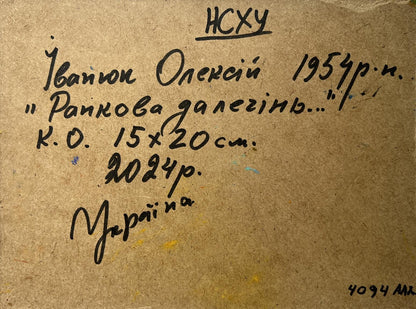 НСХУ
Івапюк Олексій 1954р.н.
„Ранкова далечінь..."
К.О. 15х20см.
2024р.
Україна
4094 ААА